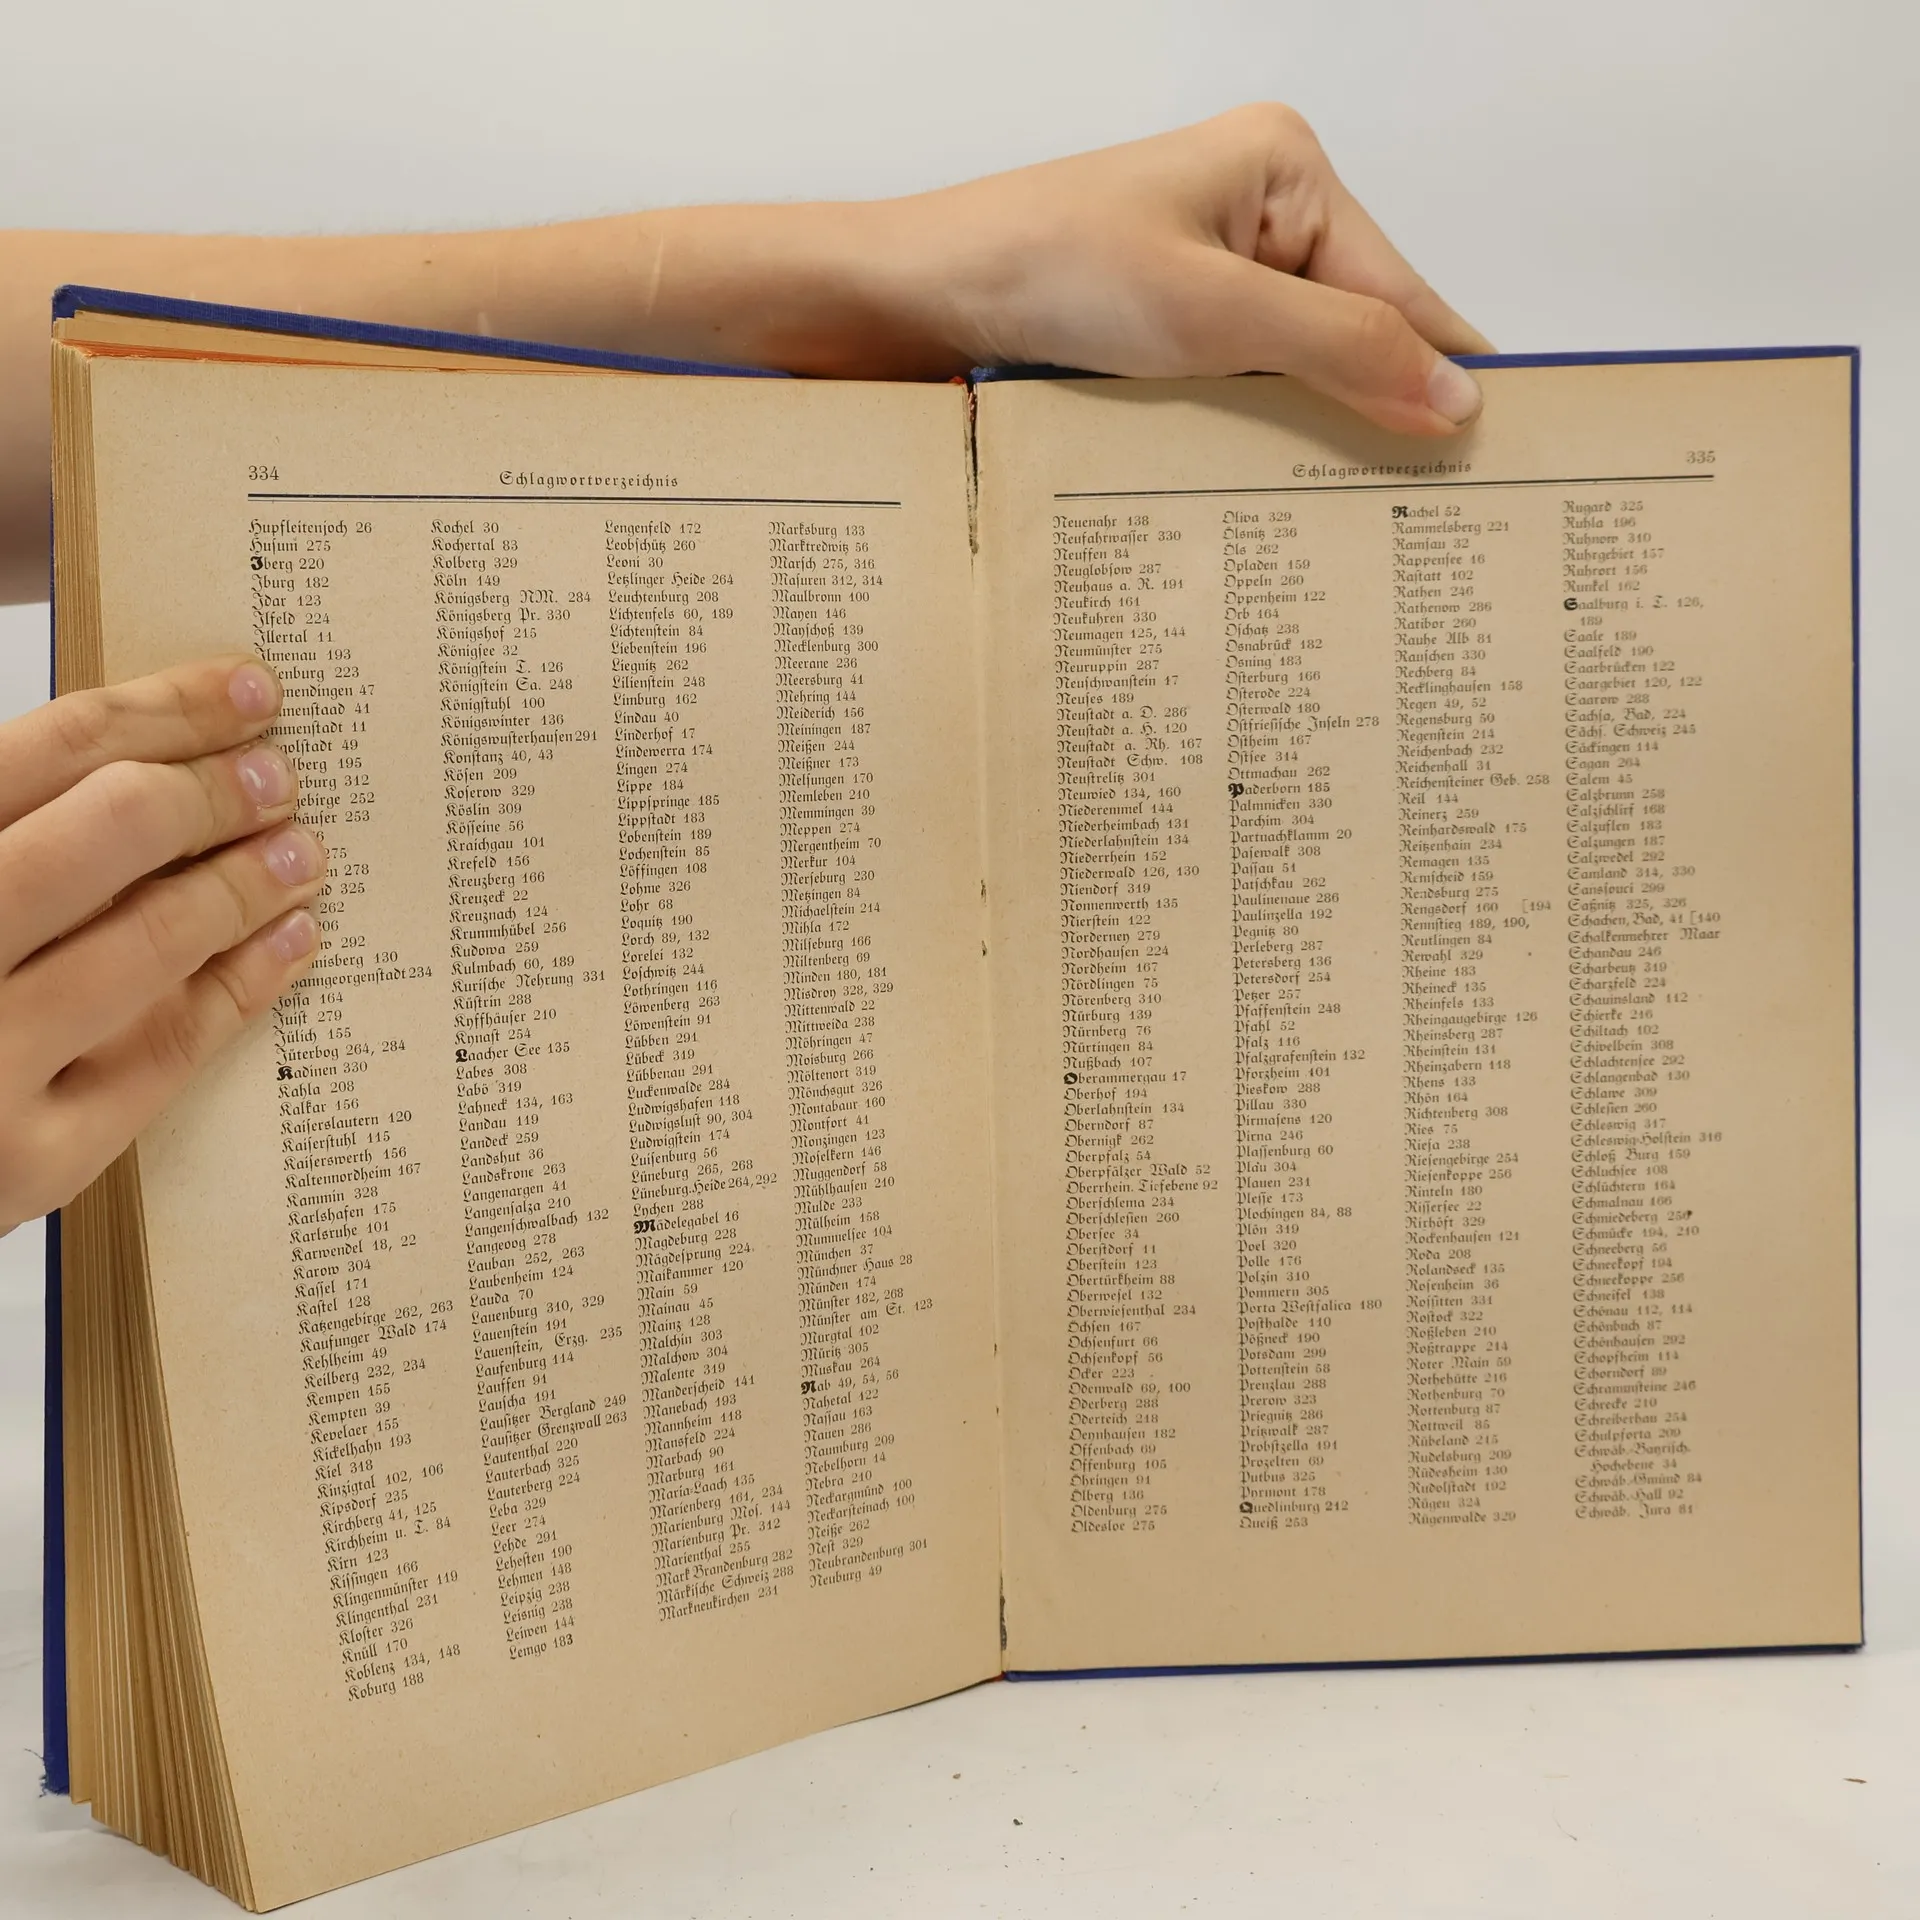 334
Schlagwortverzeichnis
Hupfleitenjoch 26
Husum 275
Iberg 220
Iburg 182
Idar 123
Ilfeld 224
Illertal 11
Ilmenau 193
enburg 223
mendingen 47
menstaad 41
mmenstadt 11
golstadt 49
lberg 195
rburg 312
gebirge 252
häuser 253
6
275
en 278
nd 325
262
206
w 292
nisberg 130
hanngeorgenstadt 234
Jossa 164
Juist 279
Jülich 155
Jüterbog 264, 284
Kadinen 330
Kahla 208
Kalkar 156
Kaiserslautern 120
Kaiserstuhl 115
Kaiserswerth 156
Kaltennordheim 167
Kammin 328
Karlshafen 175
Karlsruhe 101
Karwendel 18, 22
Karow 304
Kassel 171
Kastel 128
Katzengebirge 262, 263
Kaufunger Wald 174
Kehlheim 49
Keilberg 232, 234
Kempen 155
Kempten 39
Kevelaer 155
Kickelhahn 193
Kiel 318
Kinzigtal 102, 106
Kipsdorf 235
Kirchberg 41, 125
Kirchheim u. T. 84
Kirn 123
Kissingen 166
Klingenmünster 119
Klingenthal 231
Kloster 326
Knüll 170
Koblenz 134, 148
Koburg 188
Kochel 30
Kochertal 83
Kolberg 329
Köln 149
Königsberg NM. 284
Königsberg Pr. 330
Königshof 215
Königsee 32
Königstein T. 126
Königstein Sa. 248
Königstuhl 100
Königswinter 136
Königswusterhausen 291
Konstanz 40, 43
Kösen 209
Koserow 329
Köslin 309
Kösseine 56
Kraichgau 101
Krefeld 156
Kreuzberg 166
Kreuzeck 22
Kreuznach 124
Krummhübel 256
Kudowa 259
Kulmbach 60, 189
Kurische Nehrung 331
Küstrin 288
Kyffhäuser 210
Kynast 254
Laacher See 135
Labes 308
Labö 319
Lahneck 134, 163
Landau 119
Landeck 259
Landshut 36
Landskrone 263
Langenargen 41
Langensalza 210
Langenschwalbach 132
Langeoog 278
Lauban 252, 263
Laubenheim 124
Lauda 70
Lauenburg 310, 329
Lauenstein 191
Lauenstein, Erzg. 235
Laufenburg 114
Lauffen 91
Lauscha 191
Lausitzer Bergland 249
Lausitzer Grenzwall 263
Lautenthal 220
Lauterbach 325
Lauterberg 224
Leba 329
Leer 274
Lehde 291
Lehesten 190
Lehmen 148
Leipzig 238
Leisnig 238
Leiwen 144
Lemgo 183
Lengenfeld 172
Leobschütz 260
Leoni 30
Letzlinger Heide 264
Leuchtenburg 208
Lichtenfels 60, 189
Lichtenstein 84
Liebenstein 196
Liegnitz 262
Lilienstein 248
Limburg 162
Lindau 40
Linderhof 17
Lindewerra 174
Lingen 274
Lippe 184
Lippspringe 185
Lippstadt 183
Lobenstein 189
Lochenstein 85
Löffingen 108
Lohme 326
Lohr 68
Loquitz 190
Lorch 89, 132
Lorelei 132
Loschwitz 244
Lothringen 116
Löwenberg 263
Löwenstein 91
Lübben 291
Lübeck 319
Lübbenau 291
Luckenwalde 284
Ludwigshafen 118
Ludwigslust 90, 304
Ludwigstein 174
Luisenburg 56
Lüneburg 265, 268
Lüneburg. Heide 264, 292
Lychen 288
Mädelegabel 16
Magdeburg 228
Mägdesprung 224
Maikammer 120
Main 59
Mainau 45
Mainz 128
Malchin 303
Malchow 304
Malente 319
Manderscheid 141
Manebach 193
Mannheim 118
Mansfeld 224
Marbach 90
Marburg 161
Maria-Laach 135
Marienberg 161, 234
Marienburg Mos. 144
Marienburg Pr. 312
Marienthal 255
Mark Brandenburg 282
Märkische Schweiz 288
Markneukirchen 231
Marksburg 133
Marktredwitz 56
Marsch 275, 316
Masuren 312, 314
Maulbronn 100
Mayen 146
Mayschoß 139
Mecklenburg 300
Meerane 236
Meersburg 41
Mehring 144
Meiderich 156
Meiningen 187
Meißen 244
Meißner 173
Melsungen 170
Memleben 210
Memmingen 39
Meppen 274
Mergentheim 70
Merkur 104
Merseburg 230
Metzingen 84
Michaelstein 214
Mihla 172
Milseburg 166
Miltenberg 69
Minden 180, 181
Misdroy 328, 329
Mittenwald 22
Mittweida 238
Möhringen 47
Moisburg 266
Möltenort 319
Mönchsgut 326
Montabaur 160
Montfort 41
Monzingen 123
Moselkern 146
Muggendorf 58
Mühlhausen 210
Mulde 233
Mülheim 158
Mummelsee 104
München 37
Münchner Haus 28
Münden 174
Münster 182, 268
Münster am St. 123
Murgtal 102
Müritz 305
Muskau 264
Nab 49, 54, 56
Nahetal 122
Nassau 163
Nauen 286
Naumburg 209
Nebelhorn 14
Nebra 210
Neckargmünd 100
Neckarsteinach 100
Neiße 262
Nest 329
Neubrandenburg 301
Neuburg 49
Schlagwortverzeichnis
335
Neuenahr 138
Neufahrwasser 330
Neuffen 84
Neuglobsow 287
Neuhaus a. R. 191
Neukirch 161
Neukuhren 330
Neumagen 125, 144
Neumünster 275
Neuruppin 287
Neuschwanstein 17
Neuses 189
Neustadt a. D. 286
Neustadt a. H. 120
Neustadt a. Rh. 167
Neustadt Schw. 108
Neustrelitz 301
Neuwied 134, 160
Niederemmel 144
Niederheimbach 131
Niederlahnstein 134
Niederrhein 152
Niederwald 126, 130
Niendorf 319
Nonnenwerth 135
Nierstein 122
Norderney 279
Nordhausen 224
Nordheim 167
Nördlingen 75
Nörenberg 310
Nürburg 139
Nürnberg 76
Nürtingen 84
Nußbach 107
Oberammergau 17
Oberhof 194
Oberlahnstein 134
Oberndorf 87
Obernigk 262
Oberpfalz 54
Oberpfälzer Wald 52
Oberrhein. Tiefebene 92
Oberschlema 234
Oberschlesien 260
Obersee 34
Oberstdorf 11
Oberstein 123
Obertürkheim 88
Oberwesel 132
Oberwiesenthal 234
Ochsen 167
Ochsenfurt 66
Ochsenkopf 56
Ocker 223
Odenwald 69, 100
Oderberg 288
Oderteich 218
Oeynhausen 182
Offenbach 69
Offenburg 105
Öhringen 91
Ölberg 136
Oldenburg 275
Oldesloe 275
Oliva 329
Ölsnitz 236
Öls 262
Opladen 159
Oppeln 260
Oppenheim 122
Orb 164
Oschatz 238
Osnabrück 182
Osning 183
Osterburg 166
Osterode 224
Osterwald 180
Ostfriesische Inseln 278
Ostheim 167
Ostsee 314
Ottmachau 262
Paderborn 185
Palmnicken 330
Parchim 304
Partnachklamm 20
Pasewalk 308
Passau 51
Patschkau 262
Paulinenaue 286
Paulinzella 192
Pegnitz 80
Perleberg 287
Petersberg 136
Petersdorf 254
Petzer 257
Pfaffenstein 248
Pfahl 52
Pfalz 116
Pfalzgrafenstein 132
Pforzheim 101
Pieskow 288
Pillau 330
Pirmasens 120
Pirna 246
Plassenburg 60
Plau 304
Plauen 231
Plesse 173
Plochingen 84, 88
Plön 319
Poel 320
Polle 176
Polzin 310
Pommern 305
Porta Westfalica 180
Posthalde 110
Pößneck 190
Potsdam 299
Pottenstein 58
Prenzlau 288
Prerow 323
Priegnitz 286
Pritzwalk 287
Probstzella 191
Prozelten 69
Putbus 325
Pyrmont 178
Quedlinburg 212
Queiß 253
Rachel 52
Rammelsberg 221
Ramsau 32
Rappensee 16
Rastatt 102
Rathen 246
Rathenow 286
Ratibor 260
Rauhe Alb 81
Rauschen 330
Rechberg 84
Recklinghausen 158
Regen 49, 52
Regensburg 50
Regenstein 214
Reichenbach 232
Reichenhall 31
Reichensteiner Geb. 258
Reil 144
Reinerz 259
Reinhardswald 175
Reitzenhain 234
Remagen 135
Remscheid 159
Rendsburg 275
Rengsdorf 160 [194
Rennstieg 189, 190,
Reutlingen 84
Rewahl 329
Rheine 183
Rheineck 135
Rheinfels 133
Rheingaugebirge 126
Rheinsberg 287
Rheinstein 131
Rheinzabern 118
Rhens 133
Rhön 164
Richtenberg 308
Ries 75
Riesa 238
Riesengebirge 254
Riesenkoppe 256
Rinteln 180
Rissersee 22
Rixhöft 329
Rockenhausen 121
Roda 208
Rolandseck 135
Rosenheim 36
Rossitten 331
Rostock 322
Roßleben 210
Roßtrappe 214
Roter Main 59
Rothehütte 216
Rothenburg 70
Rottenburg 87
Rottweil 85
Rübeland 215
Rudelsburg 209
Rüdesheim 130
Rudolstadt 192
Rügen 324
Rügenwalde 329
Rugard 325
Ruhla 196
Ruhnow 310
Ruhrgebiet 157
Ruhrort 156
Runkel 162
Saalburg i. T. 126,
189
Saale 189
Saalfeld 190
Saarbrücken 122
Saargebiet 120, 122
Saarow 288
Sachsa, Bad, 224
Sächs. Schweiz 245
Säckingen 114
Sagan 264
Salem 45
Salzbrunn 258
Salzschlirf 168
Salzuflen 183
Salzungen 187
Salzwedel 292
Samland 314, 330
Sanssouci 299
Saßnitz 325, 326
Schachen, Bad, 41 [140
Schalkenmehrer Maar
Schandau 246
Scharbeutz 319
Scharzfeld 224
Schauinsland 112
Schierke 216
Schiltach 102
Schivelbein 308
Schlachtensee 292
Schlangenbad 130
Schlawe 309
Schlesien 260
Schleswig 317
Schleswig-Holstein 316
Schloß Burg 159
Schluchsee 108
Schlüchtern 164
Schmalnau 166
Schmiedeberg 256
Schmücke 194, 210
Schneeberg 56
Schneekopf 194
Schneekoppe 256
Schneifel 138
Schönau 112, 114
Schönbuch 87
Schönhausen 292
Schopfheim 114
Schorndorf 89
Schrammsteine 246
Schrecke 210
Schreiberhau 254
Schulpforta 209
Schwäb.-Bayrisch.
Hochebene 34
Schwäb.-Gmünd 84
Schwäb.-Hall 92
Schwäb. Jura 81